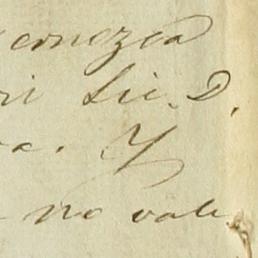 conozca
ri Lic. D.
a. Y
no vale